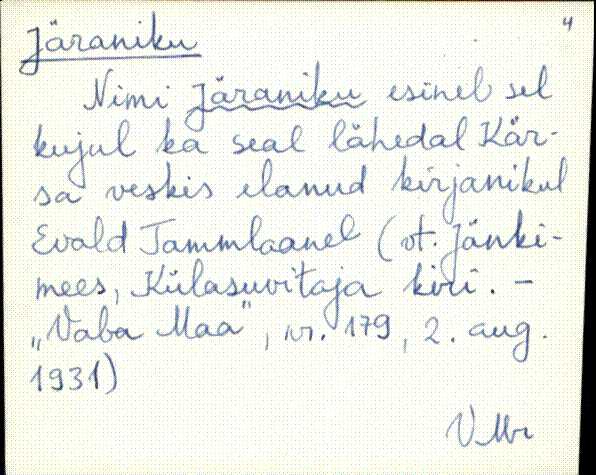 4
Järaniku
Nimi Järaniku esineb sel
kujul ka seal lähedal Kär-
sa veskis elanud kirjanikul
Evald Tammlaanel (vt. Jänki-
mees, Külasuvitaja kiri. –
„Vaba Maa", nr. 179, 2. aug.
1931)